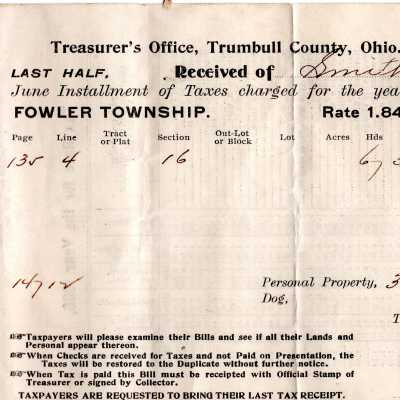 Treasurer's Office, Trumbull County, Ohio.
LAST HALF. Received of Smith
June Installment of Taxes charged for the yea
FOWLER TOWNSHIP. Rate 1.84
Page Line Tract or Plat Section Out-Lot or Block Lot Acres Hds
135 4 16 67
14 12 Personal Property, 3
Dog,
T
Taxpayers will please examine their Bills and see if all their Lands and
Personal appear thereon.
When Checks are received for Taxes and not Paid on Presentation, the
Taxes will be restored to the Duplicate without further notice.
When Tax is paid this Bill must be receipted with Official Stamp of
Treasurer or signed by Collector.
TAXPAYERS ARE REQUESTED TO BRING THEIR LAST TAX RECEIPT.